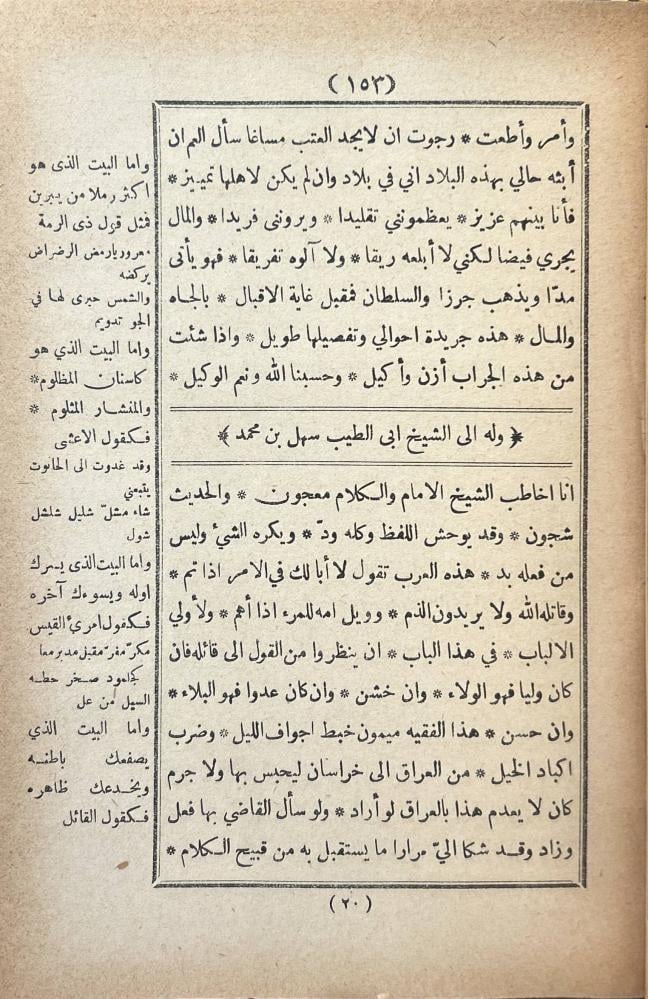 (١٥٣)
وأمر وأطعت * رجوت ان لا يجد العتب مساغا سأل العم ان
أبثه حالي بهذه البلاد اني في بلاد وان لم يكن لاهلها تمييز *
فأنا بينهم عزيز * يعظمونني تقليدا * ويرونني فريدا * والمال
يجري فيضا لكني لا أبلعه ريقا * ولا آلوه تفريقا * فهو يأتى
مدّا ويذهب جرزا والسلطان فمقبل غاية الاقبال * بالجاه
والمال * هذه جريدة احوالي وتفصيلها طويل * واذا شئت
من هذه الجراب أزن وأكيل * وحسبنا الله ونعم الوكيل *
﴿ وله الى الشيخ ابى الطيب سهل بن محمد ﴾
انا اخاطب الشيخ الامام والكلام معجون * والحديث
شجون * وقد يوحش اللفظ وكله ودّ * ويكره الشيء وليس
من فعله بد * هذه العرب تقول لا أبا لك في الامر اذا تم *
وقاتله الله ولا يريدون الذم * وويل امه للمرء اذا أهم * ولأولي
الالباب * في هذا الباب * ان ينظروا من القول الى قائله فان
كان وليا فهو الولاء * وان خشن * وان كان عدوا فهو البلاء *
وان حسن * هذا الفقيه ميمون خبط اجواف الليل * وضرب
اكباد الخيل * من العراق الى خراسان ليحبس بها ولا جرم
كان لا يعدم هذا بالعراق لو أراد * ولو سأل القاضي بها فعل
وزاد وقد شكا اليّ مرارا ما يستقبل به من قبيح الكلام *
واما البيت الذى هو
اكثر رملا من يبرين
فمثل قول ذى الرمة
معروريا رمض الرضراض
يركضه
والشمس حيرى لها في
الجو تدويم
واما البيت الذي هو
كاسنان المظلوم *
والمنشار المثلوم *
فكقول الاعشى
وقد غدوت الى الحانوت
يتبعني
شاء مشلّ شليل شلشل
شول
واما البيت الذى يسرك
اوله ويسوءك آخره
فكقول امرئ القيس
مكرّ مفرّ مقبل مدبر معا
كجلمود صخر حطه
السيل من عل
واما البيت الذي
يصفعك باطنه
ويخدعك ظاهره
فكقول القائل
(٢٠)